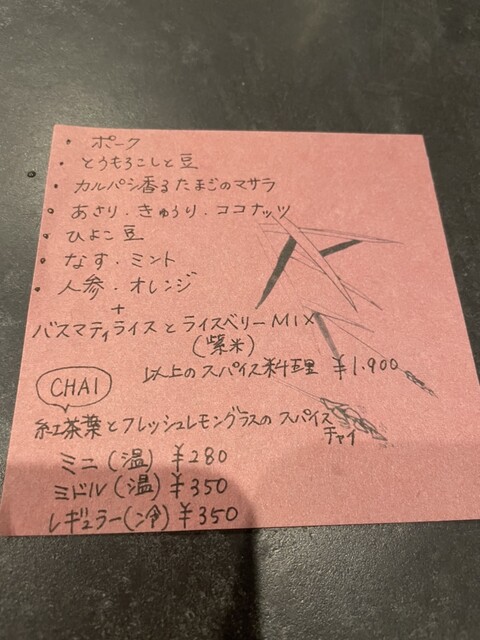 ・ポーク
・とうもろこしと豆
・カルパシ香るたまごのマサラ
・あさり・きゅうり・ココナッツ
・ひよこ豆
・なす・ミント
・人参・オレンジ
+
バスマティライスとライスベリーMIX
(紫米)
以上のスパイス料理 ¥1.900
CHAI
紅茶葉とフレッシュレモングラスのスパイス
チャイ
ミニ(温) ¥280
ミドル(温) ¥350
レギュラー(冷) ¥350